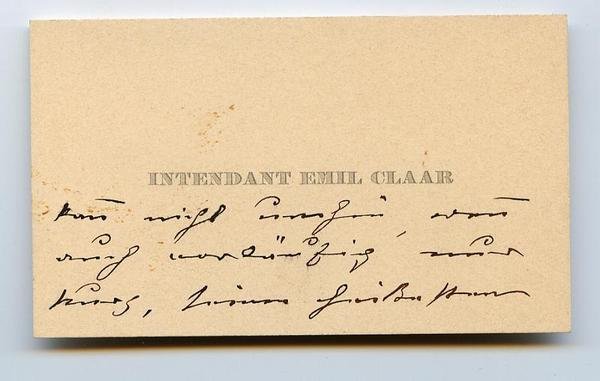 INTENDANT EMIL CLAAR
kann nicht umhin, wenn
auch vorläufig nur
kurz, seinen heißesten